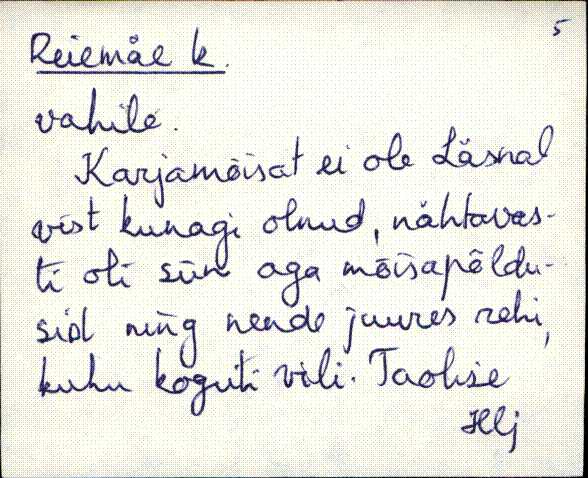 5
Reiemäe k.
vahile.
Karjamõisat ei ole Läsnal
vist kunagi olnud, nähtavas-
ti oli siin aga mõisapõldu-
sid ning nende juures rehi,
kuhu koguti vili. Taolise
Hlj